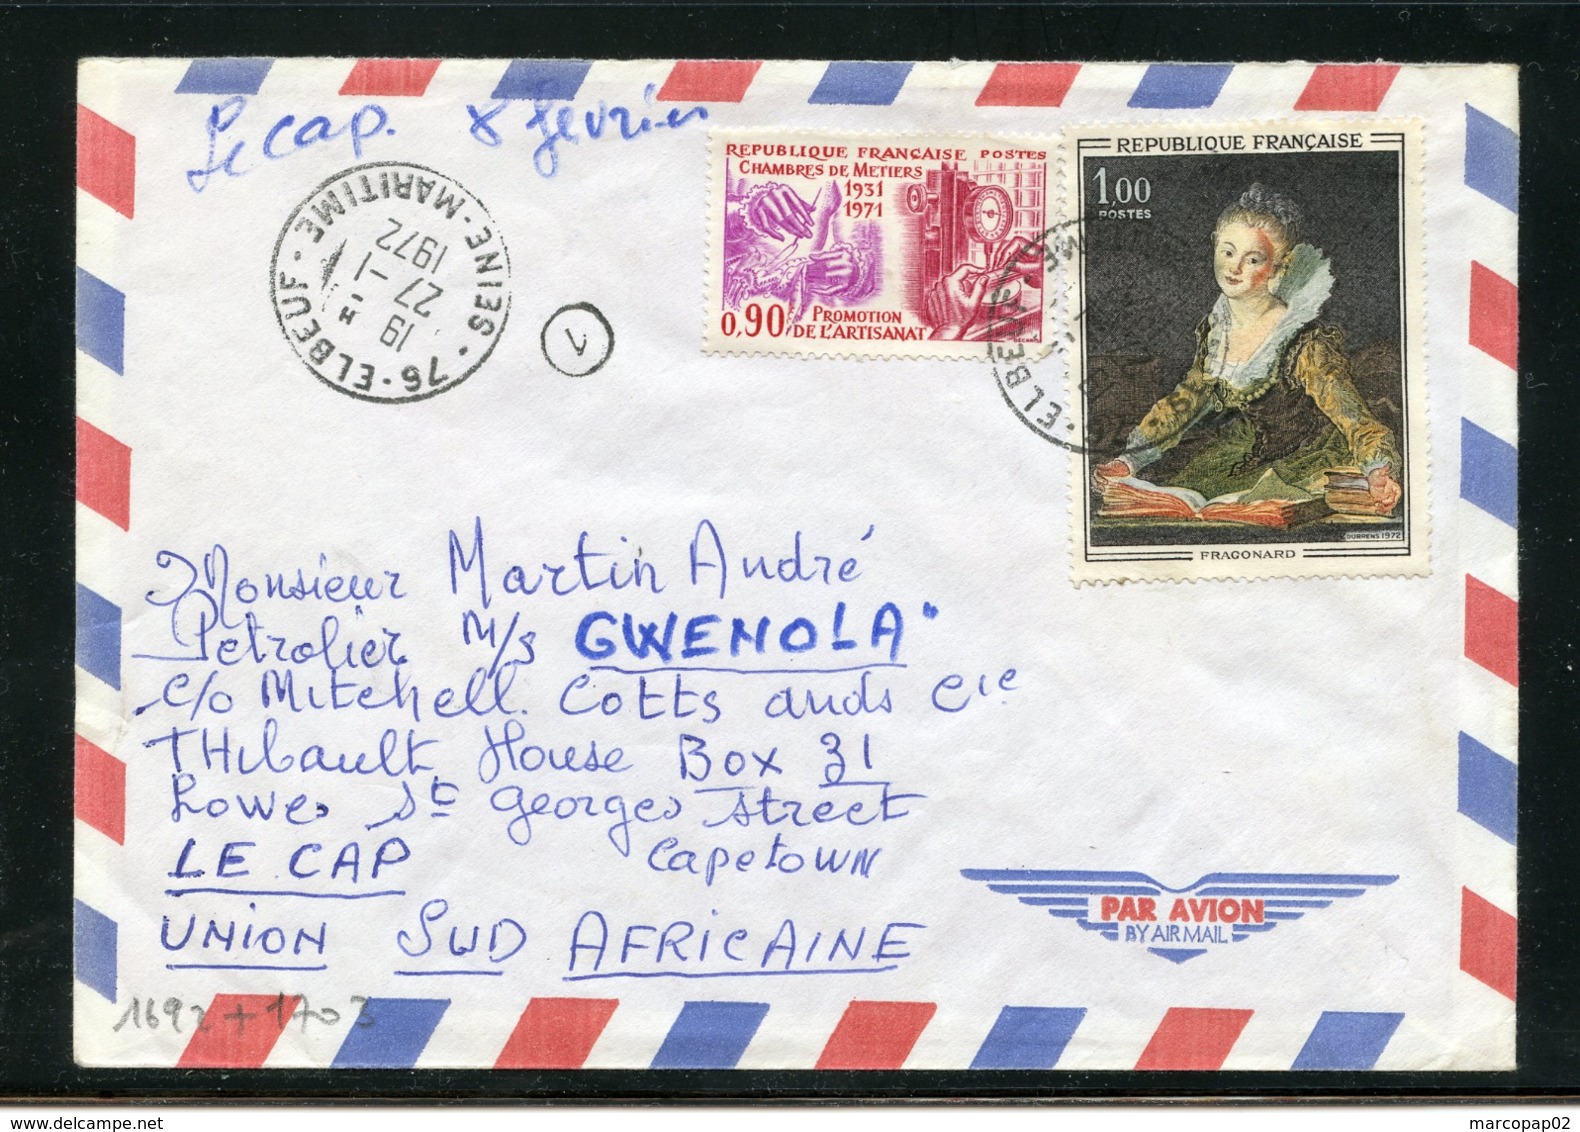 Le cap. 8 fevrier
REPUBLIQUE FRANÇAISE POSTES
CHAMBRES DE METIERS
1931
1971
0,90F
PROMOTION
DE L'ARTISANAT
DECARIS
REPUBLIQUE FRANÇAISE
1,00
POSTES
DURRENS 1972
FRAGONARD
76 · ELBEUF · SEINE-MARITIME ·
19 H
27 - 1
1972
1
ELBEUF
Monsieur Martin André
Petrolier M/s GWENOLA"
c/o Mitchell. Cotts ands Cie
THibault House Box 31
Lower St Georges street
LE CAP Capetown
UNION SUD AFRICAINE
PAR AVION
BY AIR MAIL
1692 + 1703
marcopap02